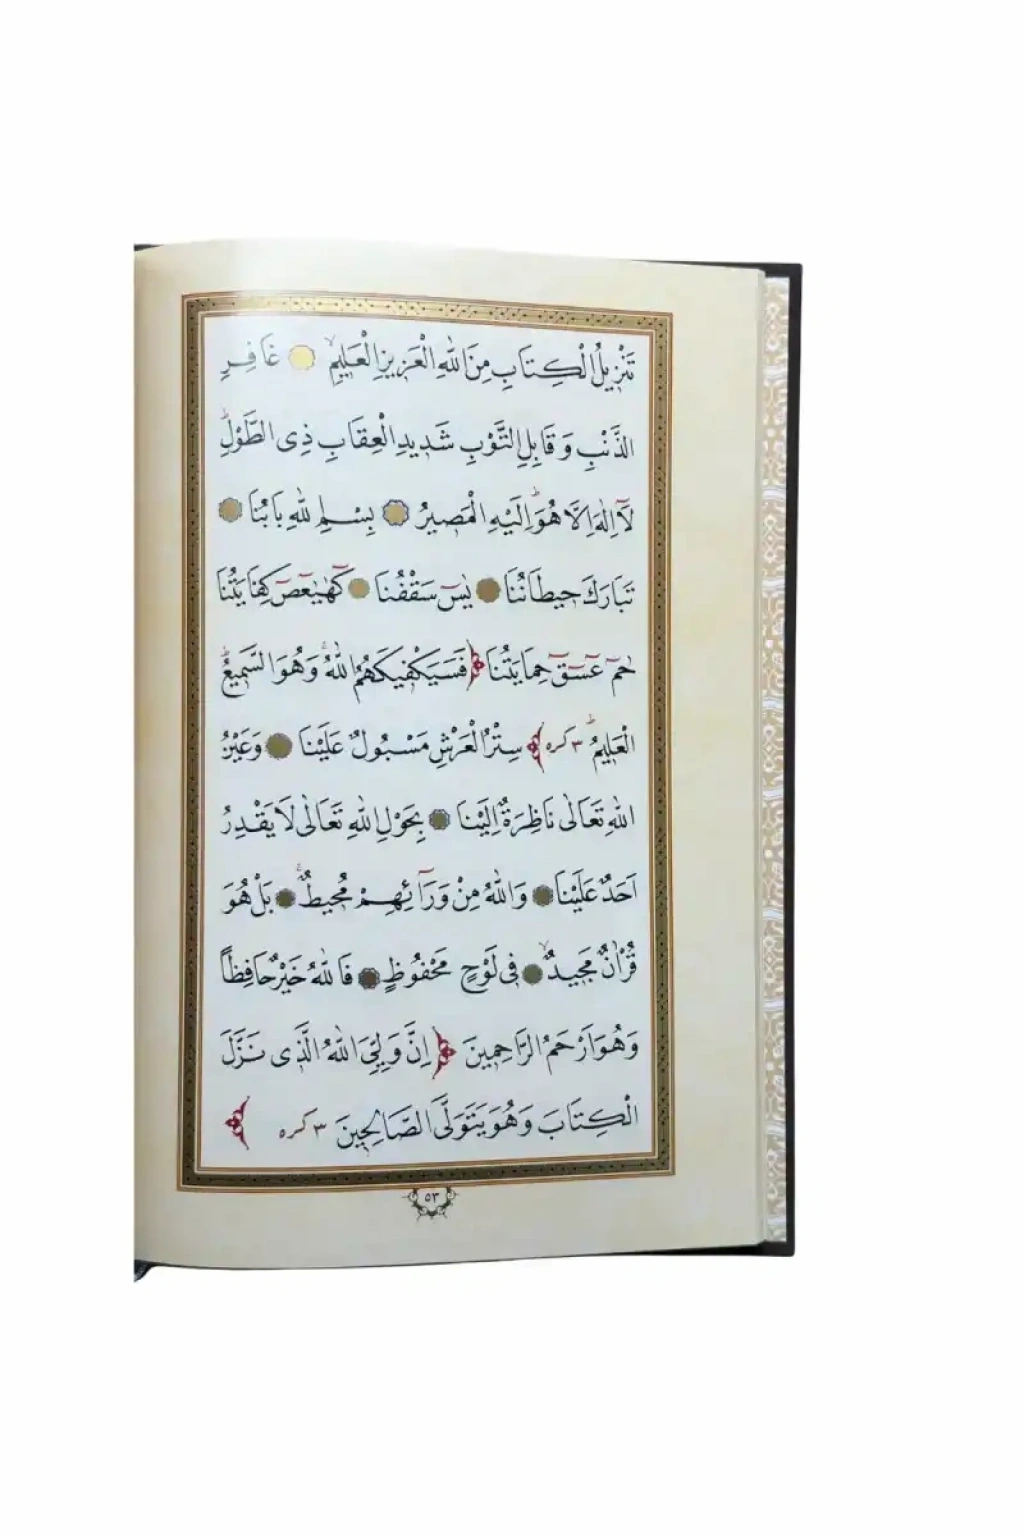 تَنْزِيلُ الْكِتَابِ مِنَ اللهِ الْعَزِيزِ الْعَلِيمِۙ غَافِرِ
الذَّنْبِ وَقَابِلِ التَّوْبِ شَدِيدِ الْعِقَابِ ذِى الطَّوْلِۜ
لَٓا اِلٰهَ اِلَّا هُوَۜ اِلَيْهِ الْمَصِيرُ بِسْمِ اللهِ بَابُنَا
تَبَارَكَ حِيطَانُنَا يٰسٓ سَقْفُنَا كٓهٰيٰعٓصٓ كِفَايَتُنَا
حٰمٓ عٓسٓقٓ حِمَايَتُنَا فَسَيَكْفِيكَهُمُ اللهُۚ وَهُوَ السَّمِيعُ
الْعَلِيمُۜ ٣ كره سِتْرُ الْعَرْشِ مَسْبُولٌ عَلَيْنَا وَعَيْنُ
اللهِ تَعَالٰى نَاظِرَةٌ اِلَيْنَا بِحَوْلِ اللهِ تَعَالٰى لَا يَقْدِرُ
اَحَدٌ عَلَيْنَا وَاللهُ مِنْ وَرَٓائِهِمْ مُحِيطٌۚ بَلْ هُوَ
قُرْاٰنٌ مَجِيدٌۙ فِى لَوْحٍ مَحْفُوظٍ فَاللهُ خَيْرٌ حَافِظًا
وَهُوَ اَرْحَمُ الرَّاحِمِينَ اِنَّ وَلِيِّىَ اللهُ الَّذِى نَزَّلَ
الْكِتَابَ وَهُوَ يَتَوَلَّى الصَّالِحِينَ ٣ كره
٥٣